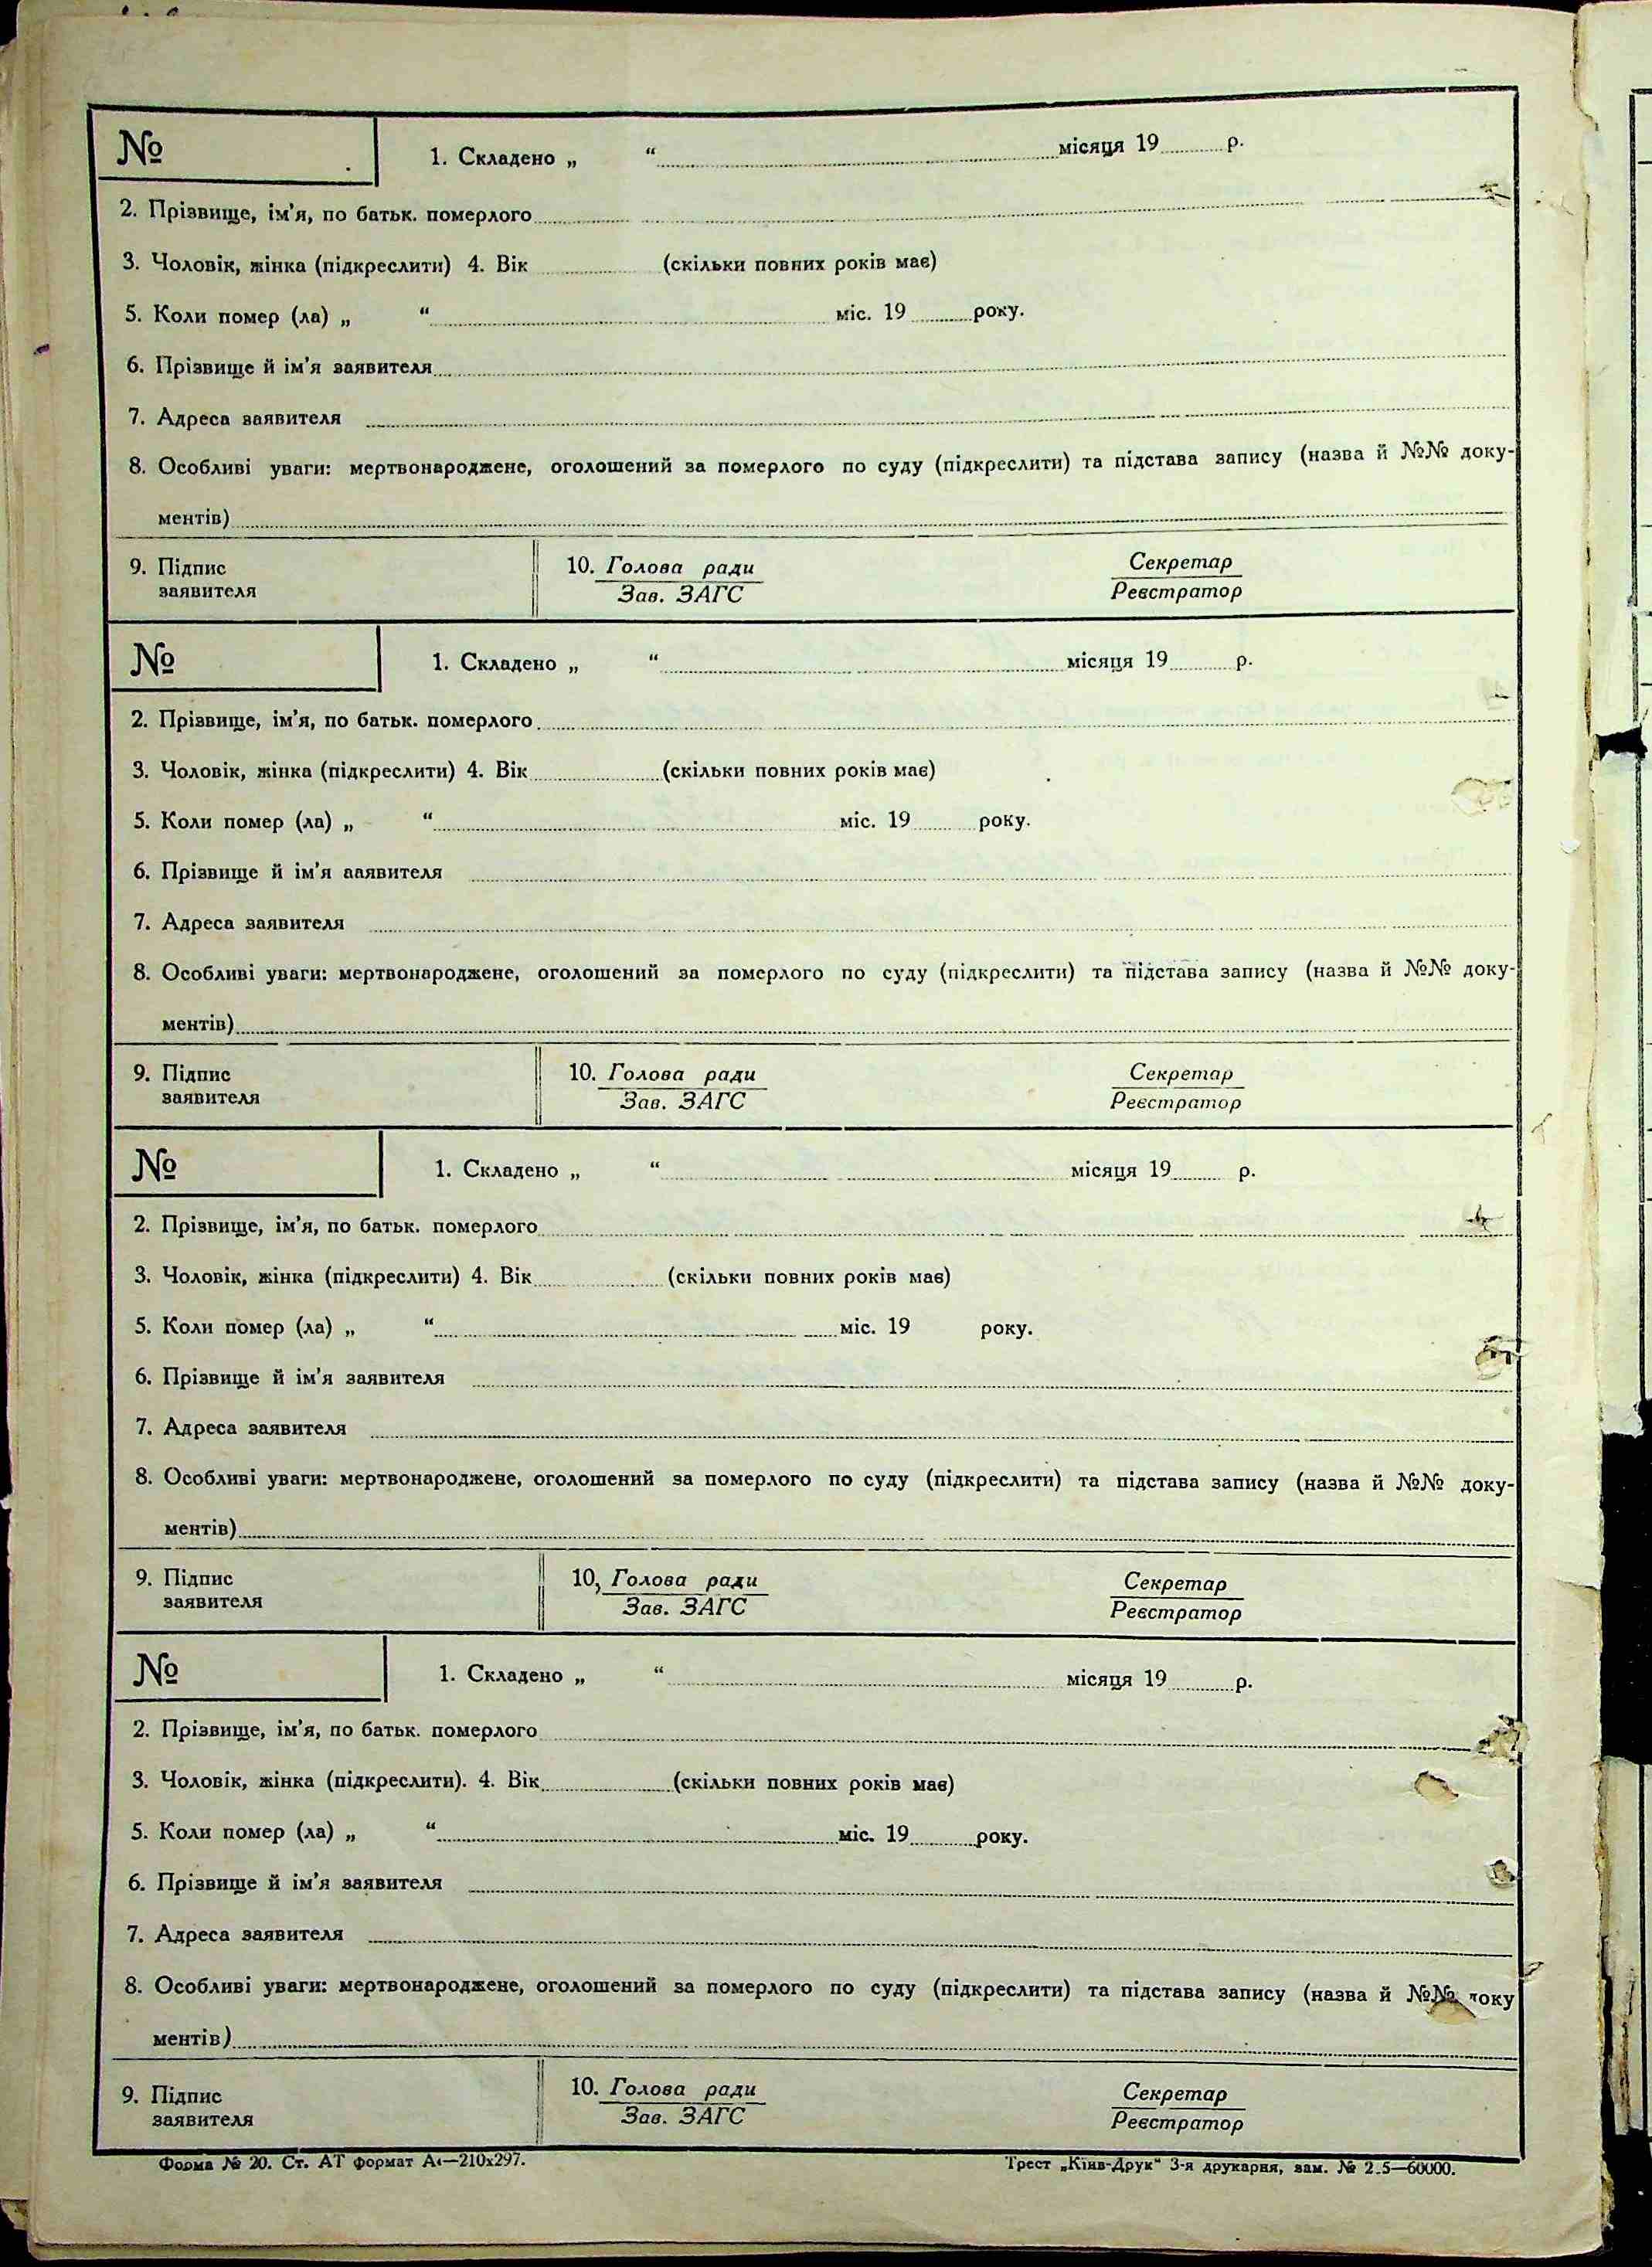 №
1. Складено „ “ місяця 19 р.
2. Прізвище, ім'я, по батьк. померлого
3. Чоловік, жінка (підкреслити) 4. Вік (скільки повних років має)
5. Коли помер (ла) „ “ міс. 19 року.
6. Прізвище й ім'я заявителя
7. Адреса заявителя
8. Особливі уваги: мертвонароджене, оголошений за померлого по суду (підкреслити) та підстава запису (назва й №№ доку-
ментів)
9. Підпис заявителя
10. Голова ради Секретар
Зав. ЗАГС Реєстратор
№
1. Складено „ “ місяця 19 р.
2. Прізвище, ім'я, по батьк. померлого
3. Чоловік, жінка (підкреслити) 4. Вік (скільки повних років має)
5. Коли помер (ла) „ “ міс. 19 року.
6. Прізвище й ім'я ааявителя
7. Адреса заявителя
8. Особливі уваги: мертвонароджене, оголошений за померлого по суду (підкреслити) та підстава запису (назва й №№ доку-
ментів)
9. Підпис заявителя
10. Голова ради Секретар
Зав. ЗАГС Реєстратор
№
1. Складено „ “ місяця 19 р.
2. Прізвище, ім'я, по батьк. померлого
3. Чоловік, жінка (підкреслити) 4. Вік (скільки повних років має)
5. Коли помер (ла) „ “ міс. 19 року.
6. Прізвище й ім'я заявителя
7. Адреса заявителя
8. Особливі уваги: мертвонароджене, оголошений за померлого по суду (підкреслити) та підстава запису (назва й №№ доку-
ментів)
9. Підпис заявителя
10, Голова ради Секретар
Зав. ЗАГС Реєстратор
№
1. Складено „ “ місяця 19 р.
2. Прізвище, ім'я, по батьк. померлого
3. Чоловік, жінка (підкреслити). 4. Вік (скільки повних років має)
5. Коли помер (ла) „ “ міс. 19 року.
6. Прізвище й ім'я заявителя
7. Адреса заявителя
8. Особливі уваги: мертвонароджене, оголошений за померлого по суду (підкреслити) та підстава запису (назва й №№ доку
ментів)
9. Підпис заявителя
10. Голова ради Секретар
Зав. ЗАГС Реєстратор
Форма № 20. Ст. АТ формат А4—210x297. Трест „Київ-Друк“ 3-я друкарня, зам. №